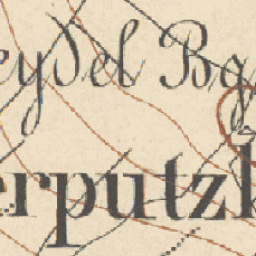 eydel Bg.
erputzk